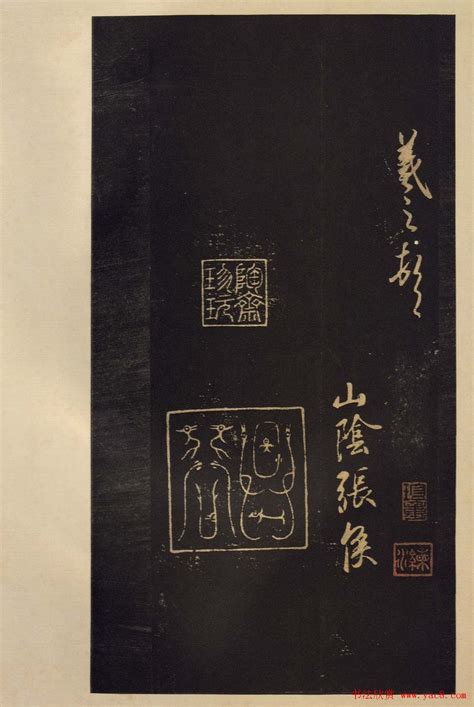 羲之頓首
山陰張侯
陶齋
珍玩
书法欣赏 www.yac8.com